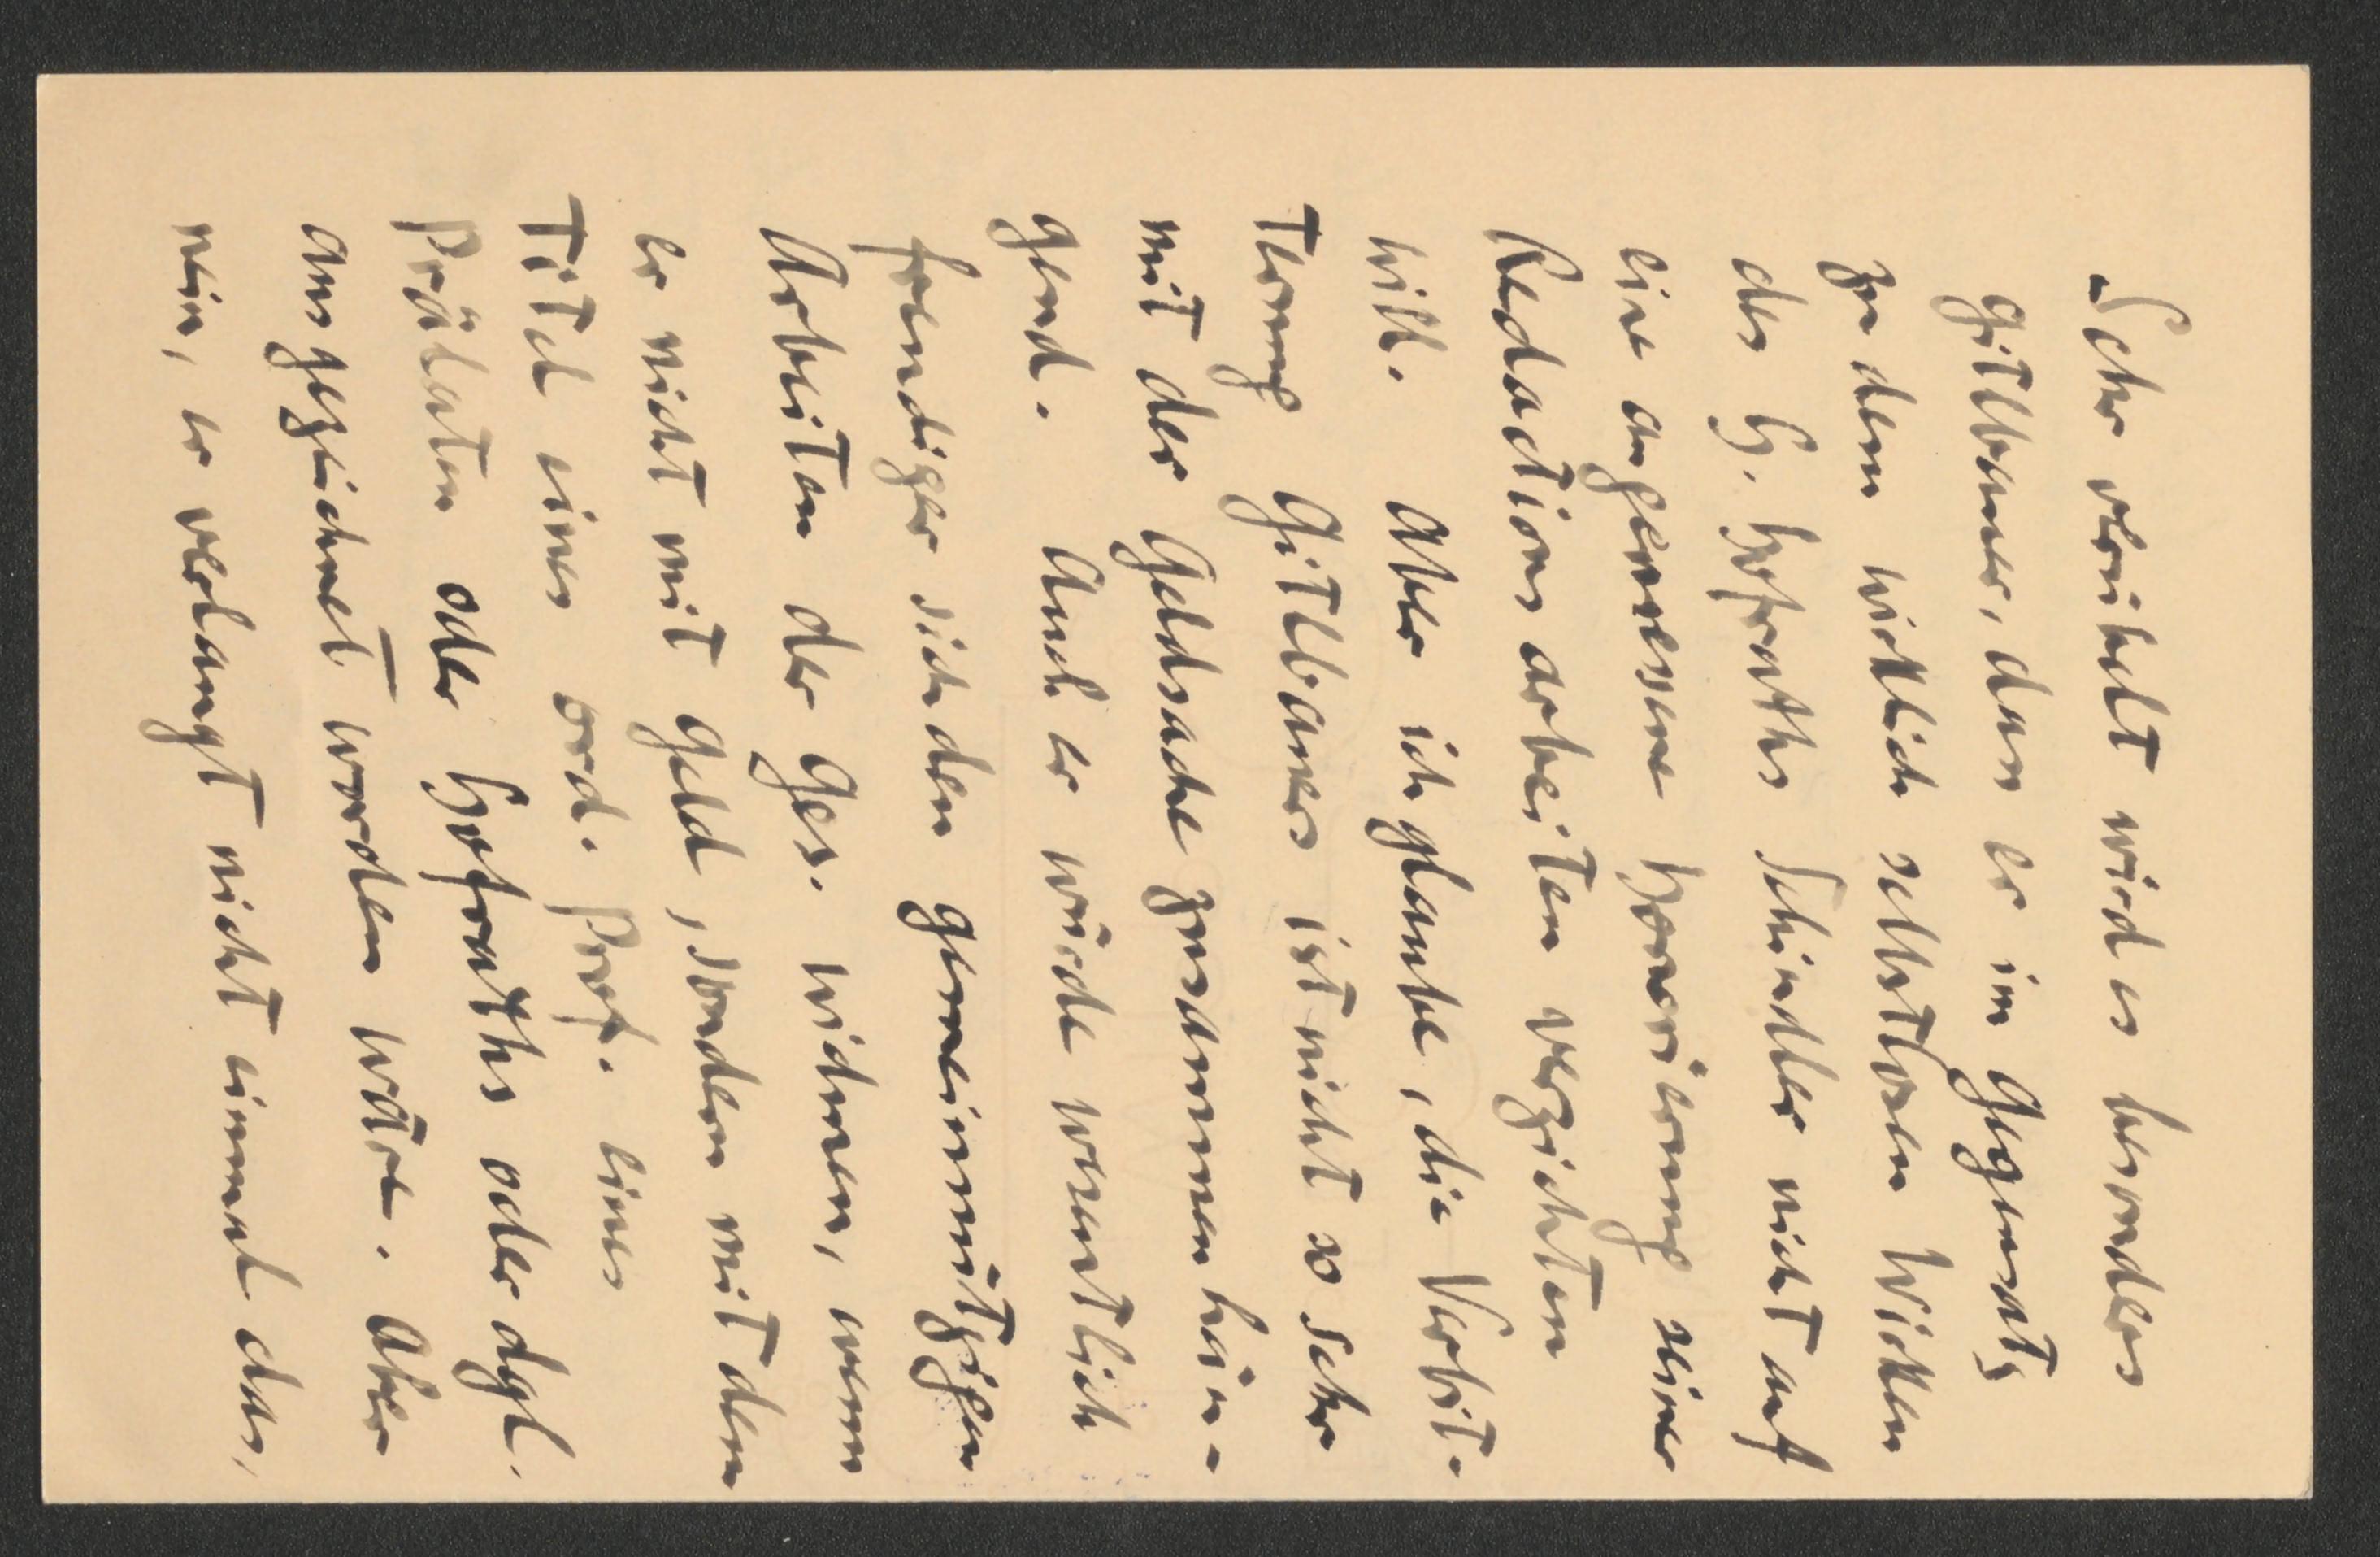 Sehr verübelt wird es besonders
Gitlbauer, dass er im Gegensatz
zu dem wirklich selbstlosen Wirken
des H. Hofraths Schindler nicht auf
eine angemessene Honorierung seiner
Redactionsarbeiten verzichten
will. Aber ich glaube, die Verbit-
terung Gitlbauers ist nicht so sehr
mit der Geldsache zusammenhän-
gend. Auch er würde wesentlich
freudiger sich den gemeinnützigen
Arbeiten der Ges. widmen, wenn
er nicht mit Geld, sondern mit dem
Titel eines ord. Prof. eines
Prälaten oder Hofraths oder dgl.
ausgezeichnet worden wäre. Aber
nein, er verlangt nicht einmal das,